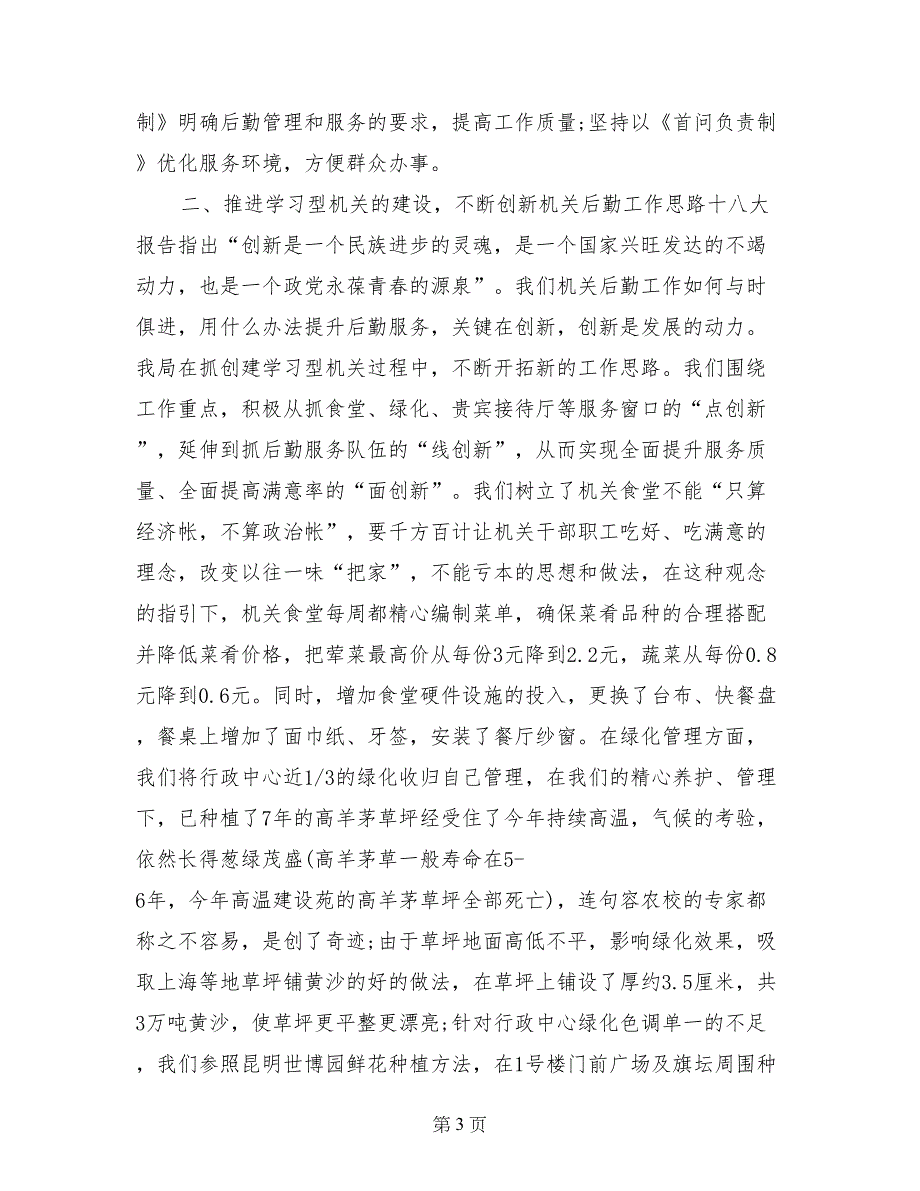 制》明确后勤管理和服务的要求，提高工作质量;坚持以《首问负责制
》优化服务环境，方便群众办事。
二、推进学习型机关的建设，不断创新机关后勤工作思路十八大
报告指出“创新是一个民族进步的灵魂，是一个国家兴旺发达的不竭
动力，也是一个政党永葆青春的源泉”。我们机关后勤工作如何与时
俱进，用什么办法提升后勤服务，关键在创新，创新是发展的动力。
我局在抓创建学习型机关过程中，不断开拓新的工作思路。我们围绕
工作重点，积极从抓食堂、绿化、贵宾接待厅等服务窗口的“点创新
”，延伸到抓后勤服务队伍的“线创新”，从而实现全面提升服务质
量、全面提高满意率的“面创新”。我们树立了机关食堂不能“只算
经济帐，不算政治帐”，要千方百计让机关干部职工吃好、吃满意的
理念，改变以往一味“把家”，不能亏本的思想和做法，在这种观念
的指引下，机关食堂每周都精心编制菜单，确保菜肴品种的合理搭配
并降低菜肴价格，把荤菜最高价从每份3元降到2.2元，蔬菜从每份0.8
元降到0.6元。同时，增加食堂硬件设施的投入，更换了台布、快餐盘
，餐桌上增加了面巾纸、牙签，安装了餐厅纱窗。在绿化管理方面，
我们将行政中心近1/3的绿化收归自己管理，在我们的精心养护、管理
下，已种植了7年的高羊茅草坪经受住了今年持续高温，气候的考验，
依然长得葱绿茂盛(高羊茅草一般寿命在5-
6年，今年高温建设苑的高羊茅草坪全部死亡)，连句容农校的专家都
称之不容易，是创了奇迹;由于草坪地面高低不平，影响绿化效果，吸
取上海等地草坪铺黄沙的好的做法，在草坪上铺设了厚约3.5厘米，共
3万吨黄沙，使草坪更平整更漂亮;针对行政中心绿化色调单一的不足
，我们参照昆明世博园鲜花种植方法，在1号楼门前广场及旗坛周围种
第 3 页